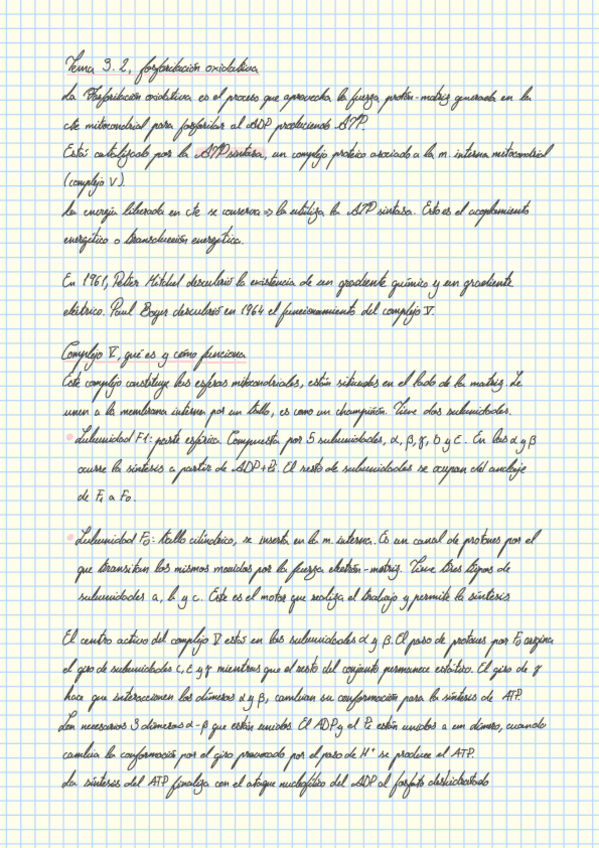 Tema 3.2, fosforilación oxidativa
La Fosforilación oxidativa es el proceso que aprovecha la fuerza protón-motriz generada en la
cte mitocondrial para fosforilar al ADP produciendo ATP.
Está catalizado por la ATP sintasa, un complejo proteico asociado a la m. interna mitocondrial
(complejo V).
La energía liberada en cte se conserva → la utiliza la ATP sintasa. Esto es el acoplamiento
energético o transducción energética.
En 1961, Peter Mitchel descubrió la existencia de un gradiente químico y un gradiente
eléctrico. Paul Boyer descubrió en 1964 el funcionamiento del complejo V.
Complejo V, qué es y cómo funciona
Este complejo constituye las esferas mitocondriales, están situadas en el lado de la matriz. Se
unen a la membrana interna por un tallo, es como un champiñón. Tiene dos subunidades.
• Subunidad F1: parte esférica. Compuesta por 5 subunidades, α, β, γ, δ y ε. En las α y β
ocurre la síntesis a partir de ADP+Pi. El resto de subunidades se ocupan del anclaje
de F₁ a F₀.
• Subunidad F₀: tallo cilíndrico, se inserta en la m. interna. Es un canal de protones por el
que transitan los mismos movidos por la fuerza electrón-motriz. Tiene tres tipos de
subunidades a, b y c. Este es el motor que realiza el trabajo y permite la síntesis
El centro activo del complejo V está en las subunidades α y β. El paso de protones por F₀ origina
el giro de subunidades c, ε y γ mientras que el resto del conjunto permanece estático. El giro de γ
hace que interaccionen los dímeros α y β, cambian su conformación para la síntesis de ATP.
Son necesarios 3 dímeros α-β que están unidos. El ADP y el Pi están unidos a un dímero, cuando
cambia la conformación por el giro provocado por el paso de H⁺ se produce el ATP.
La síntesis del ATP finaliza con el ataque nucleofílico del ADP al fosfato deshidratado